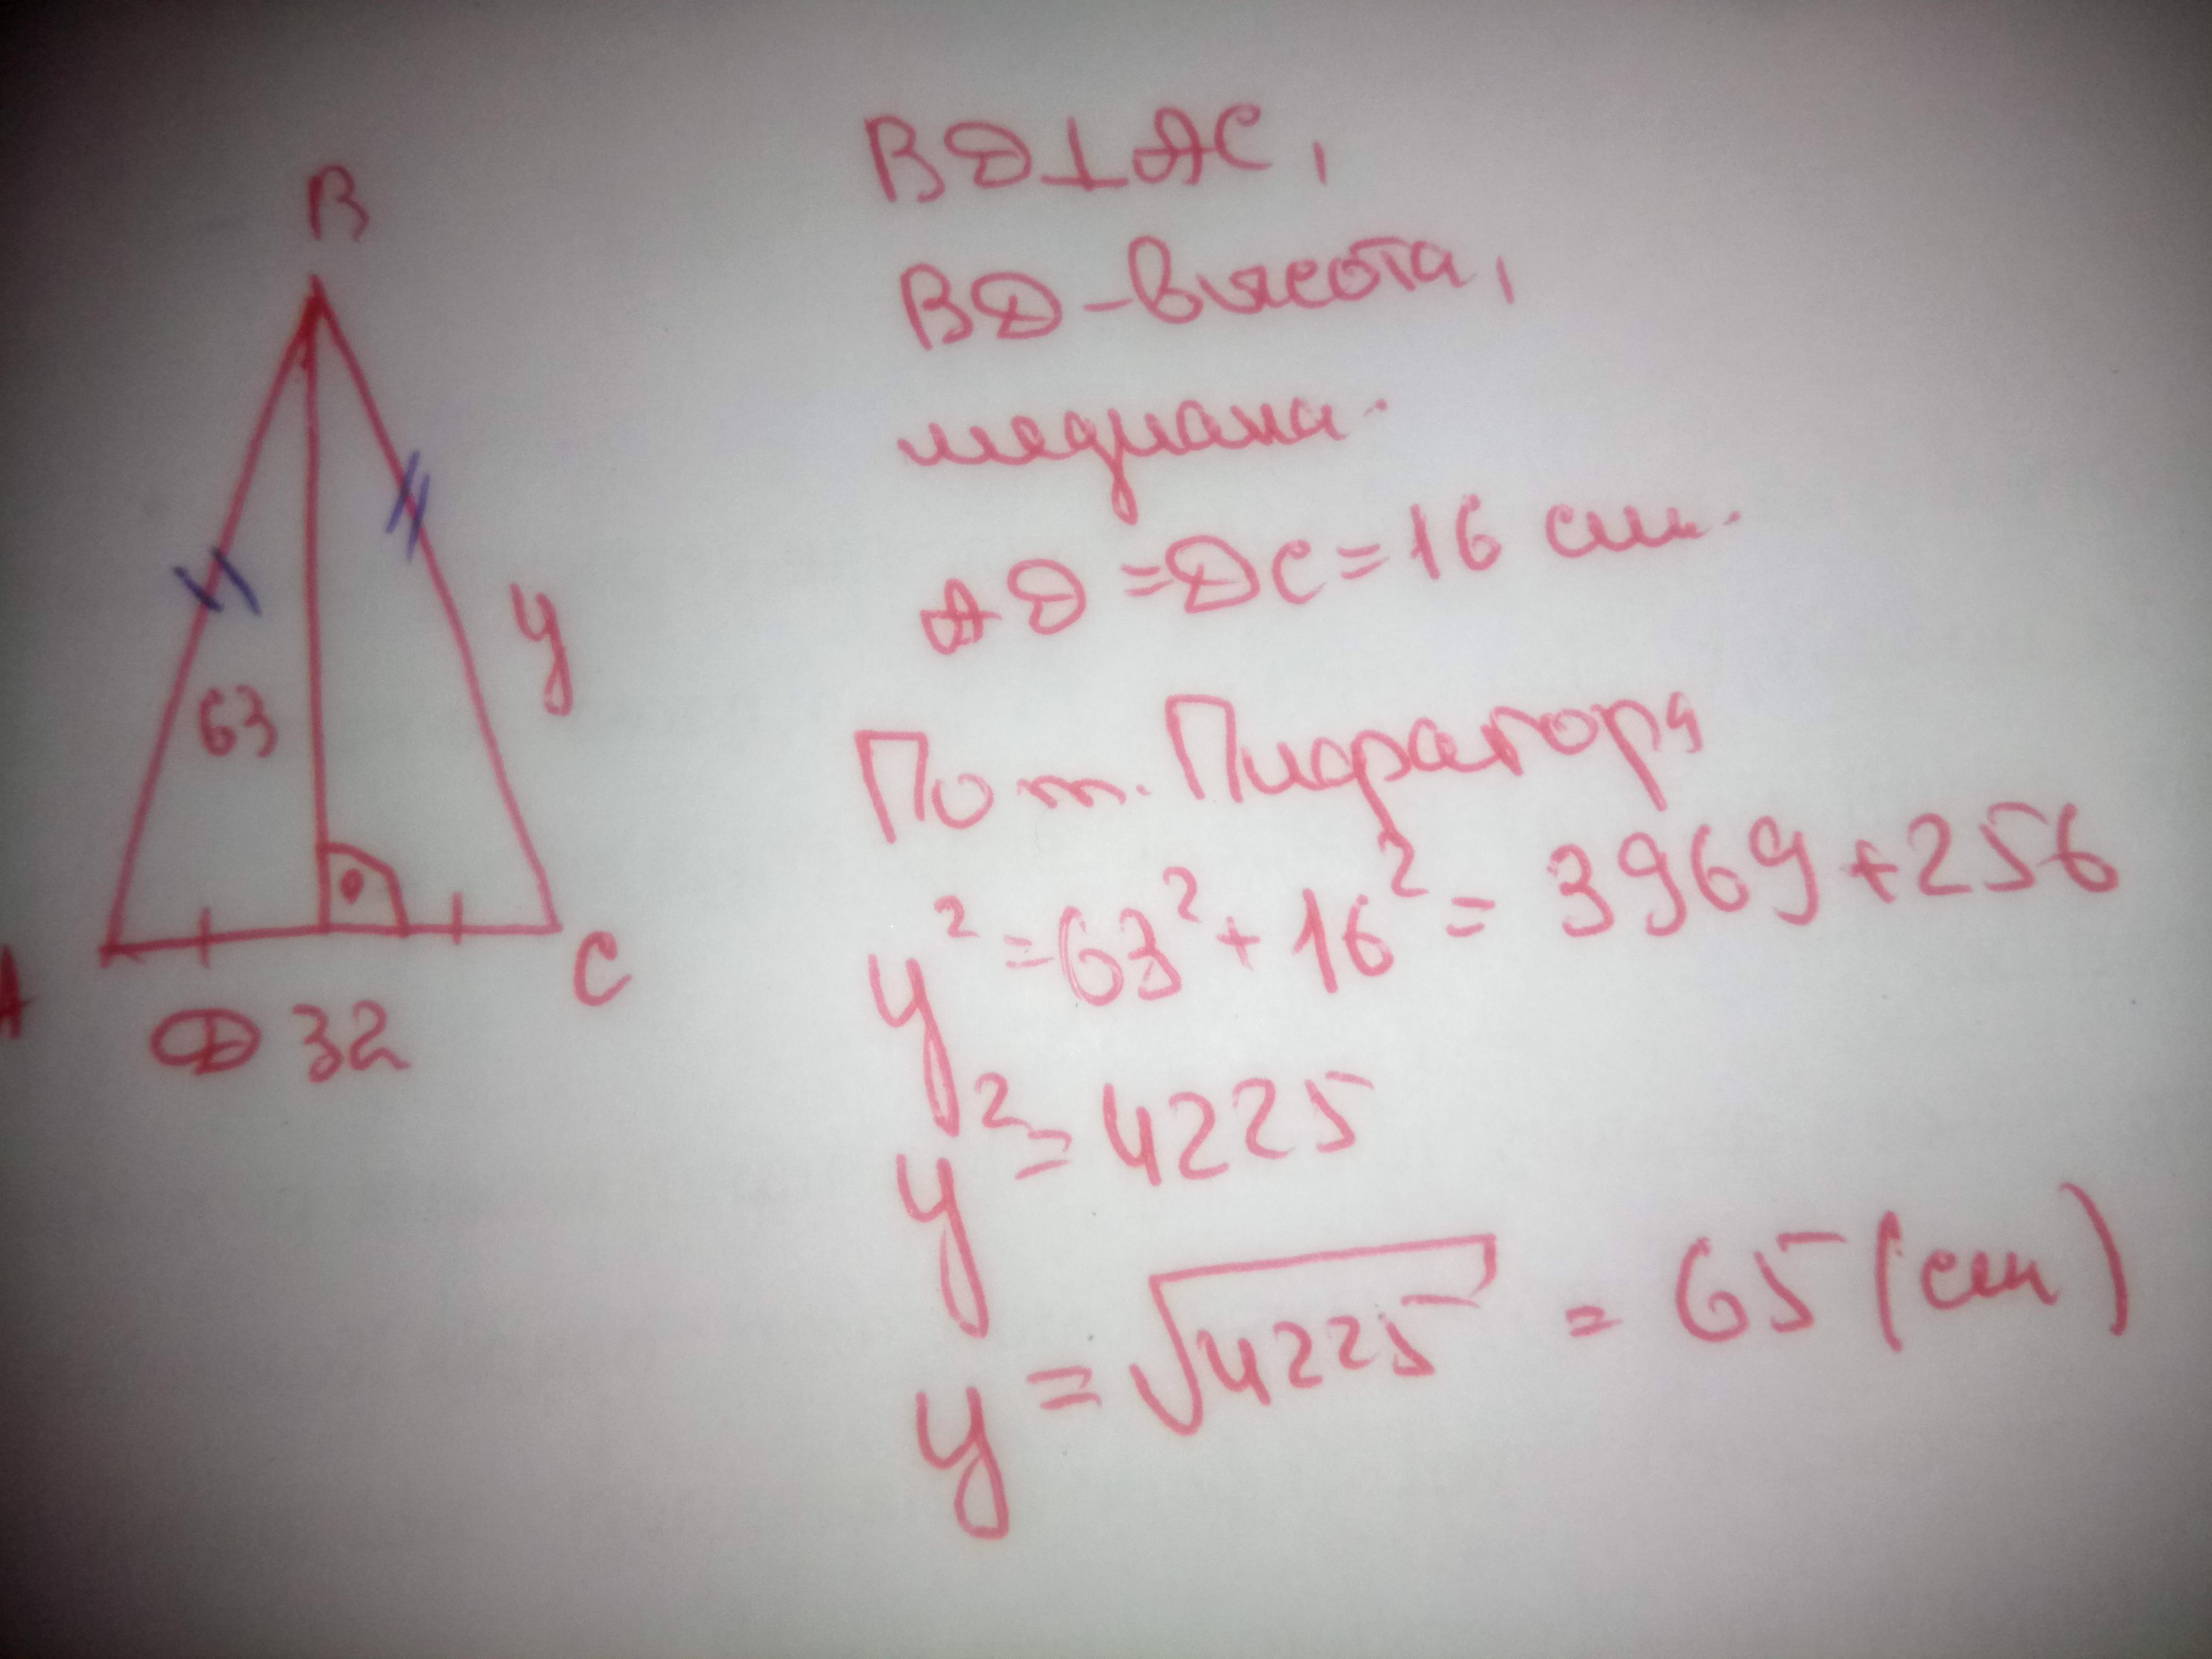 B
63
y
A
C
D 32
BD⊥AC,
BD-высота,
медиана.
AD=DC=16 см.
По т. Пифагора
y²=63²+16²=3969+256
y²=4225
y=√4225=65(см)